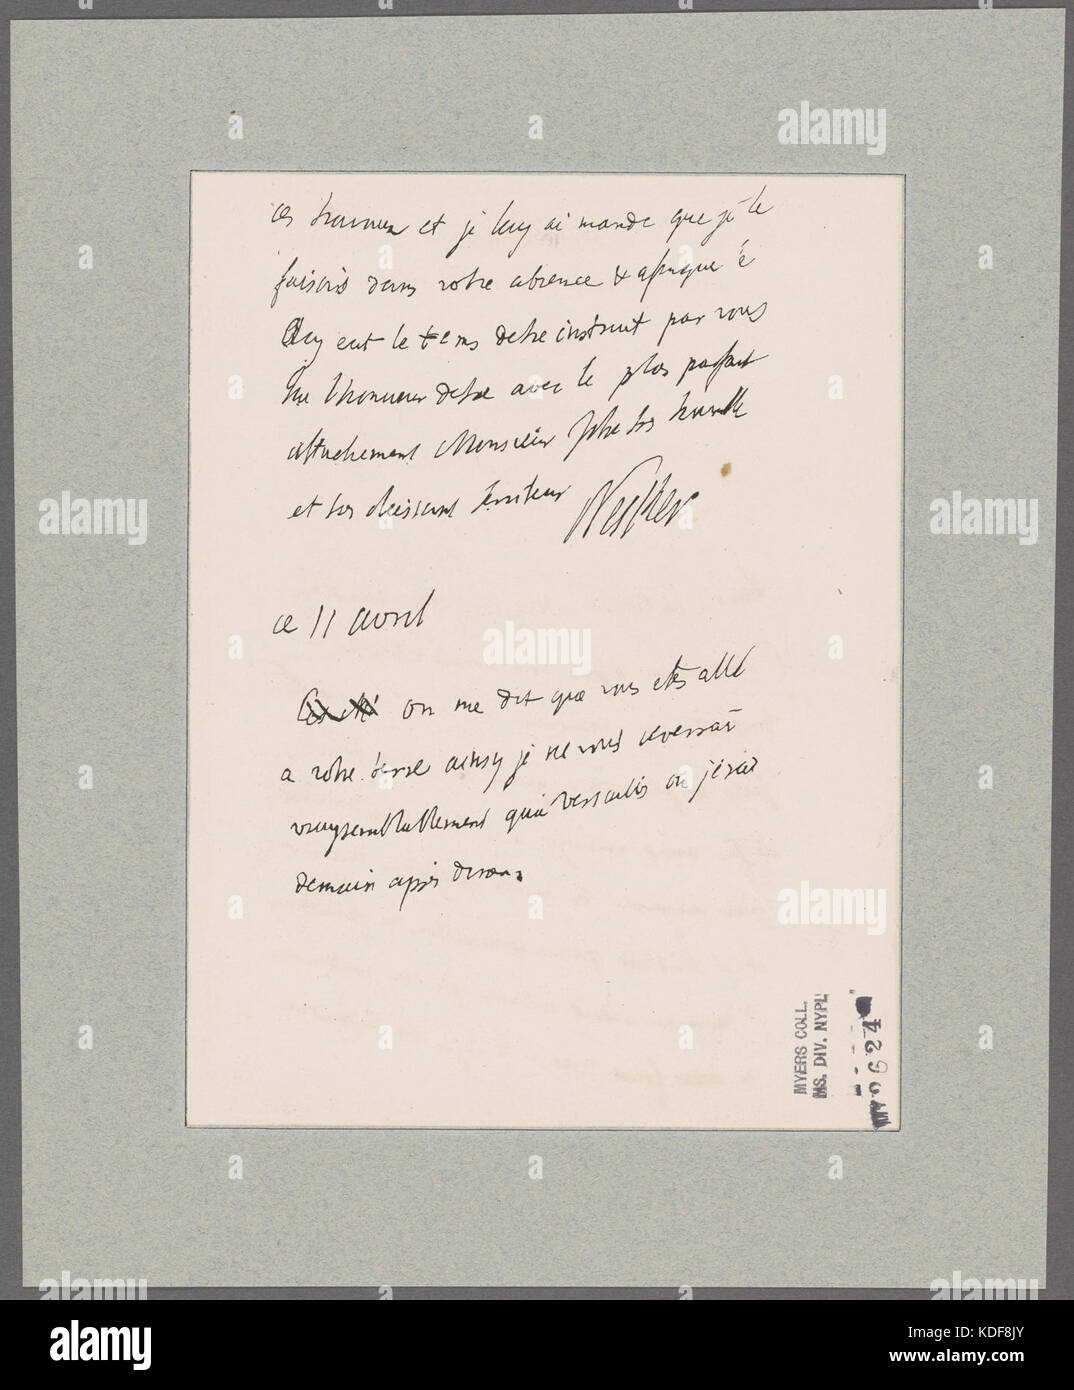 ces travaux et je luy ai mandé que je le
faisois dans votre absence & afinque
il luy eut le tems detre instruit par vous
l'honneur detre avec le plus parfait
attachement Monsieur Votre tres humble
et tres obeissant serviteur Necker
ce 11 avril
on me dit que vous etes allé
a votre terre ainsy je ne vous reverrai
vraysemblablement qua Versailles ou j'irai
demain après diner.
MYERS COLL.
MS. DIV. NYPL
alamy
Image ID: KDF8JY
www.alamy.com